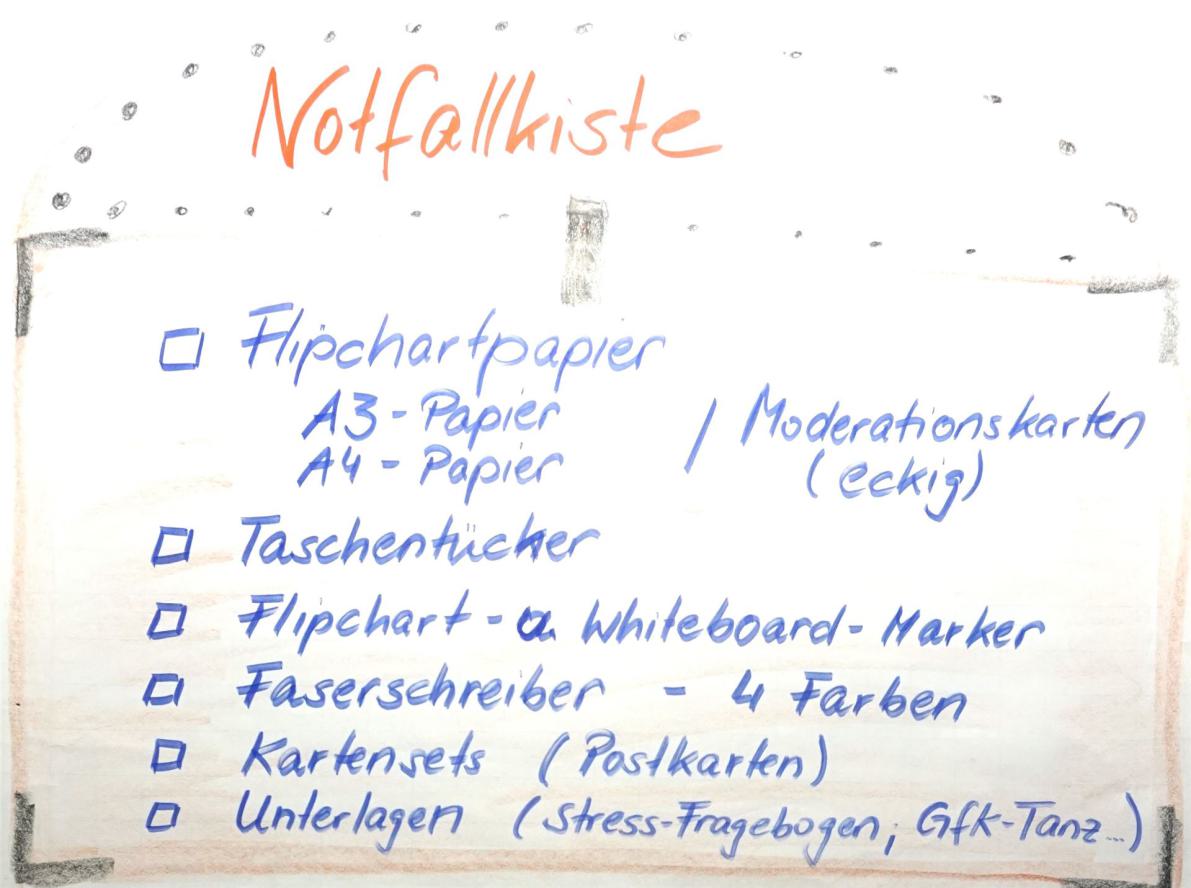 Notfallkiste
□ Flipchartpapier
A3-Papier / Moderationskarten
A4 - Papier (eckig)
□ Taschentücher
□ Flipchart - u. Whiteboard- Marker
□ Faserschreiber - 4 Farben
□ Kartensets (Postkarten)
□ Unterlagen (Stress-Fragebogen; GfK-Tanz...)